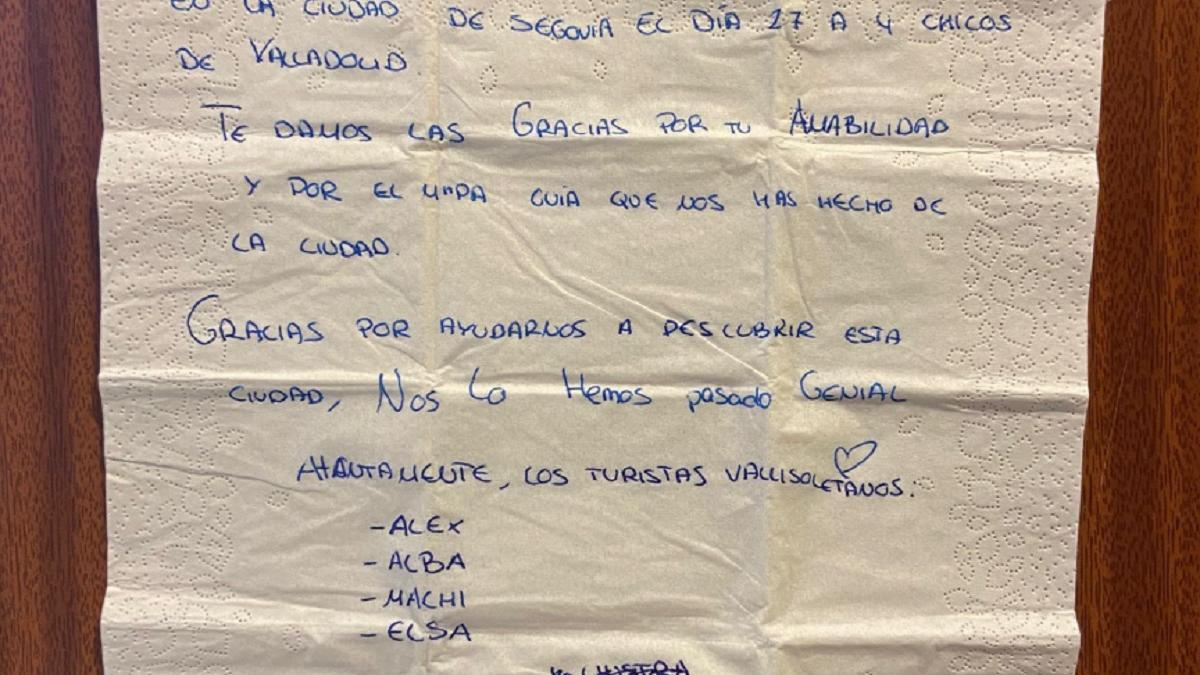 EN LA CIUDAD DE SEGOVIA EL DÍA 27 A 4 CHICOS
DE VALLADOLID.
TE DAMOS LAS GRACIAS POR TU AMABILIDAD
Y POR EL MAPA GUIA QUE NOS HAS HECHO DE
LA CIUDAD.
GRACIAS POR AYUDARNOS A DESCUBRIR ESTA
CIUDAD, Nos Lo Hemos pasado GENIAL
ATENTAMENTE, LOS TURISTAS VALLISOLETANOS:
- ALEX
- ALBA
- MACHI
- ELSA